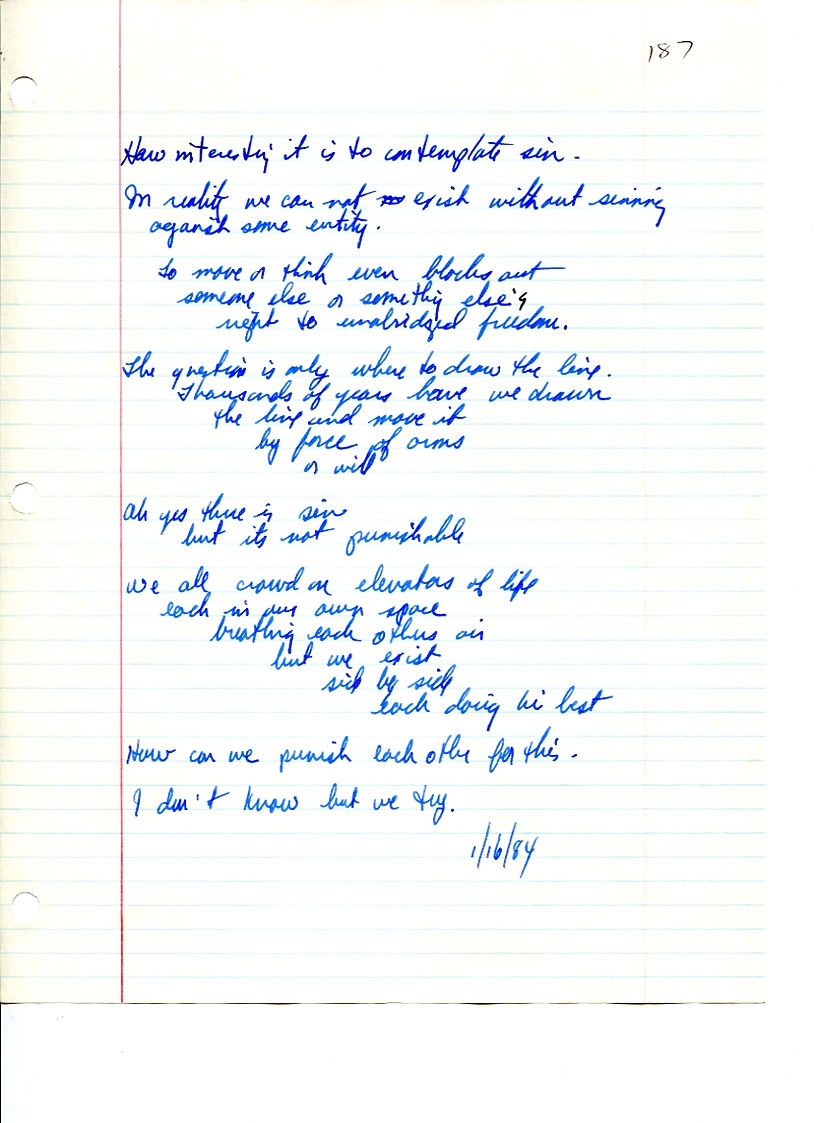 187
How interesting it is to contemplate sin.
In reality we can not exist without sinning
against some entity.
To move or think even blocks out
someone else or something else's
right to unabridged freedom.
The question is only where to draw the line.
Thousands of years have we drawn
the line and move it
by force of arms
or will
Ah yes there is sin
but its not punishable
We all crowd on elevators of life
each in our own space
breathing each others air
but we exist
side by side
each doing his best
How can we punish each other for this.
I don't know but we try.
1/16/84